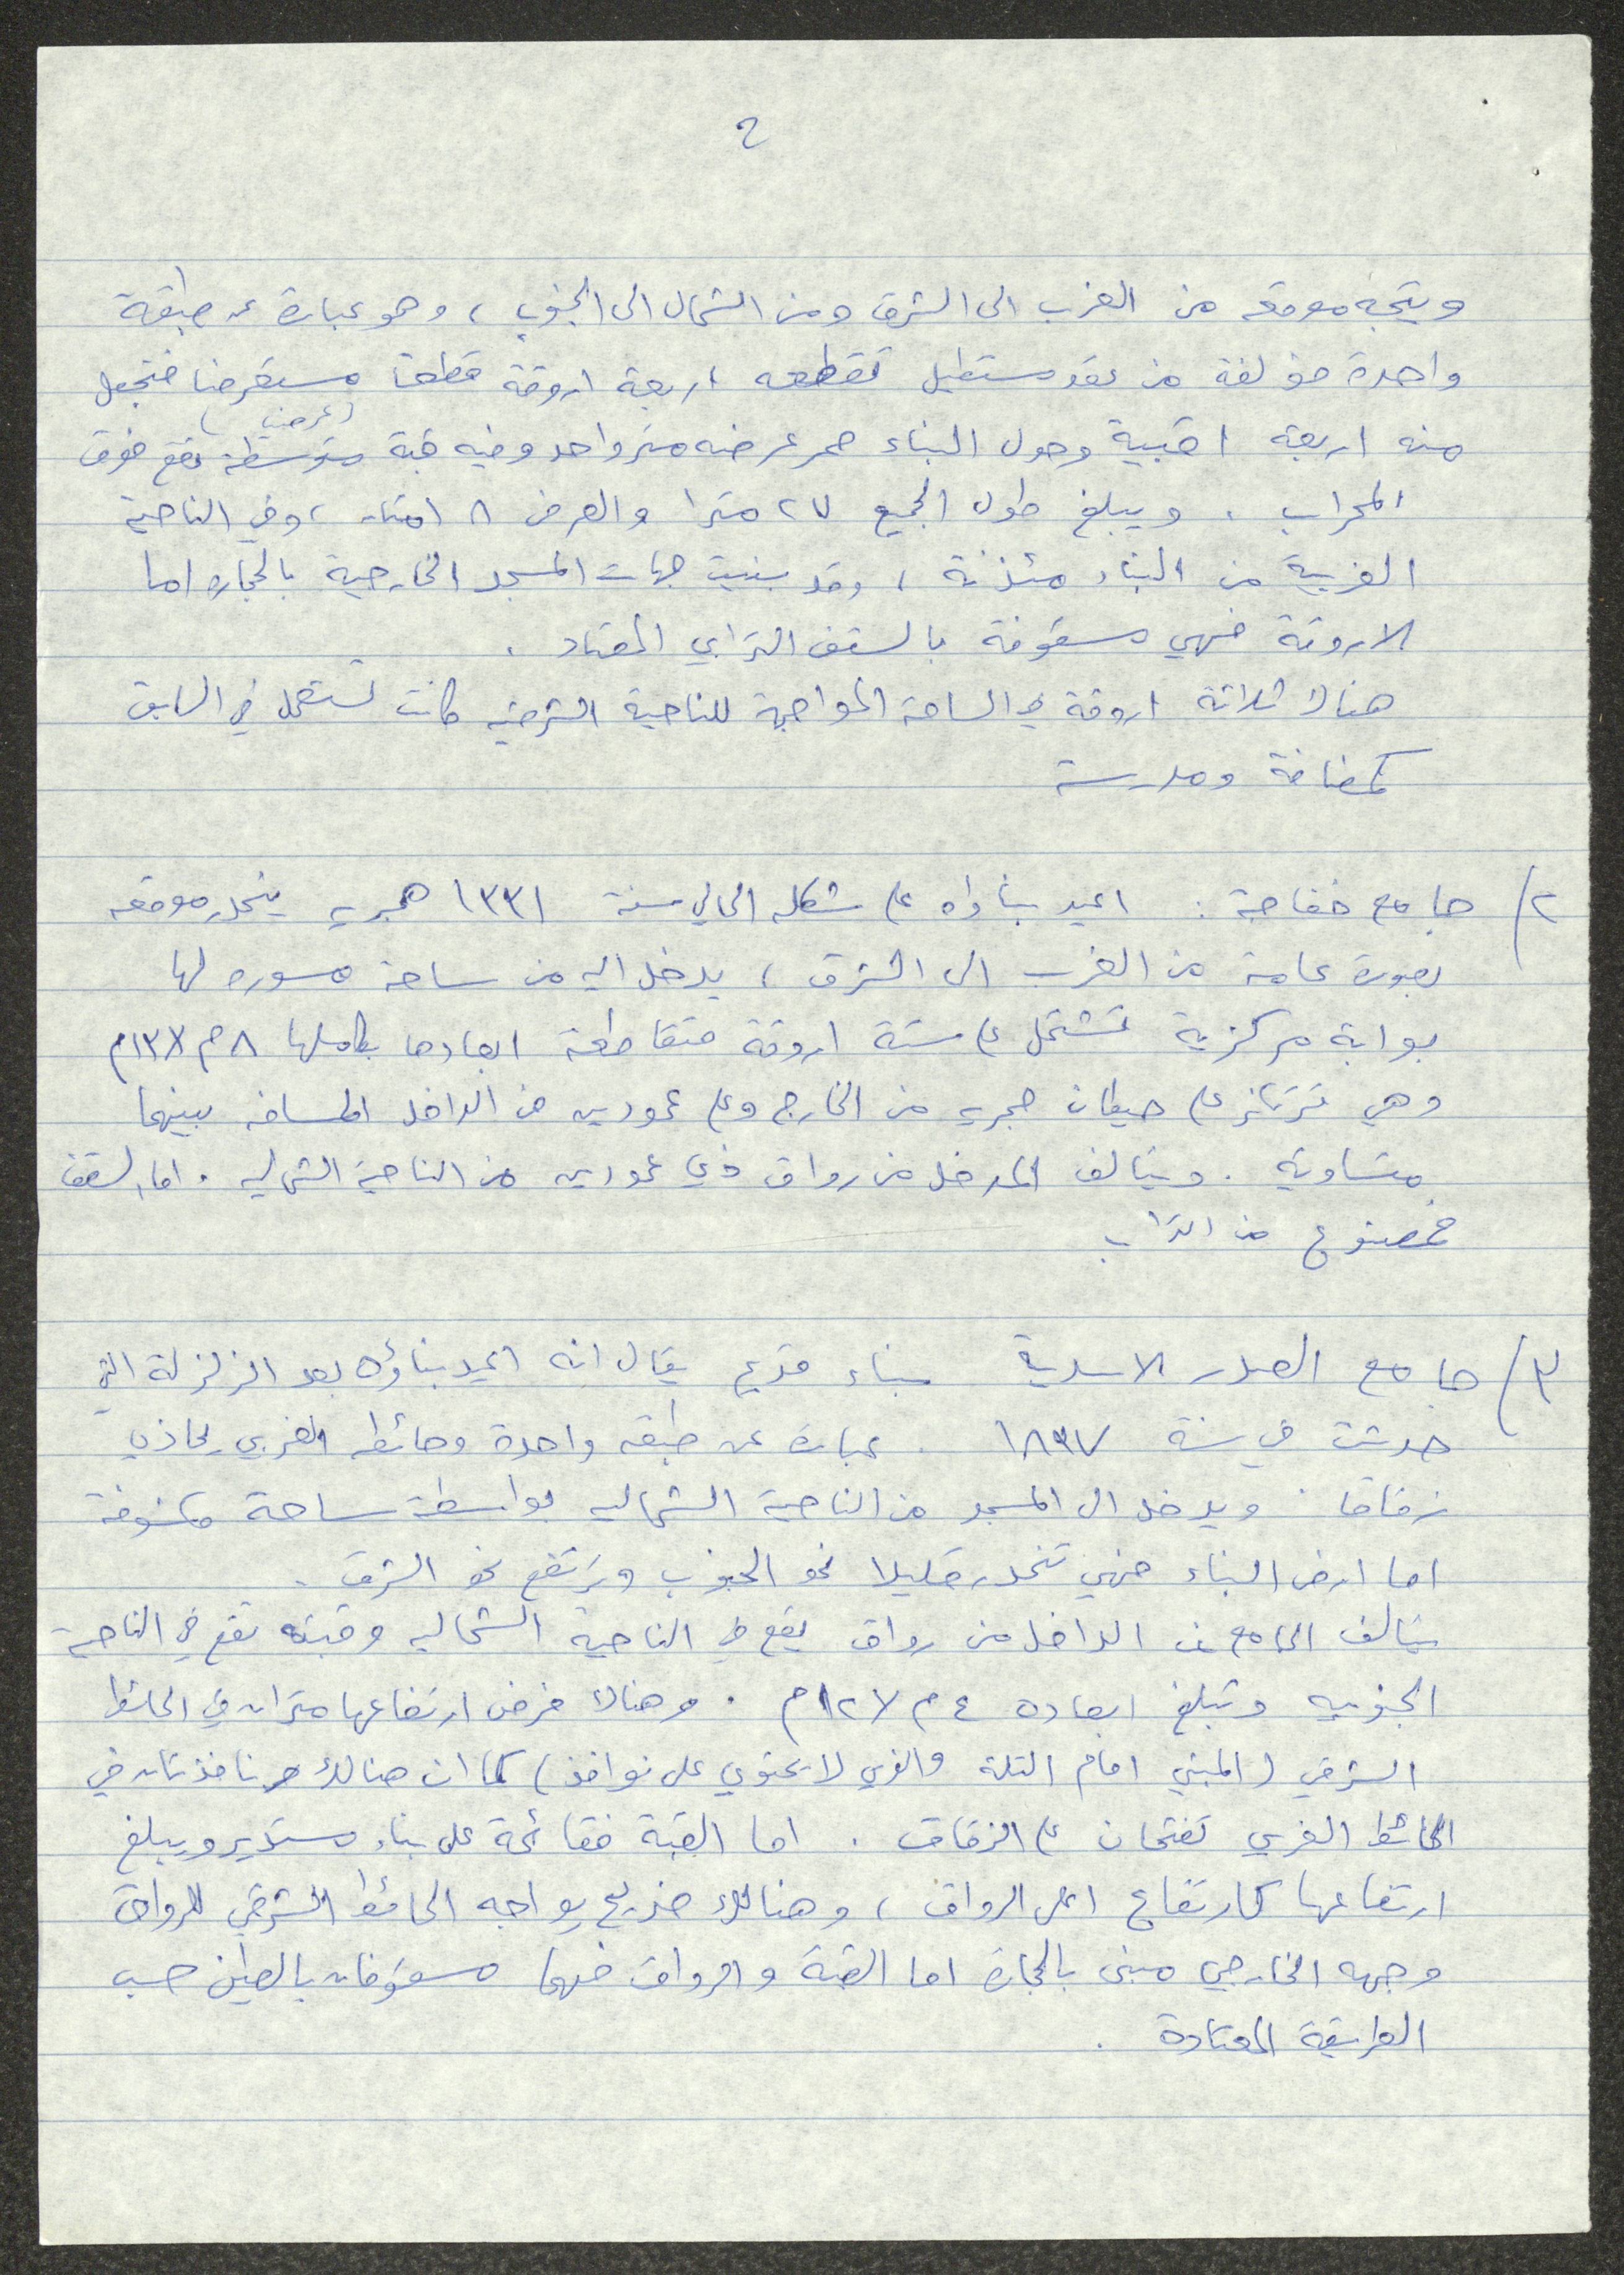 ٢
ويتجه موقعه من الغرب الى الشرق ومن الشمال الى الجنوب ، وهو عبارة عن طبقة
واحدة مؤلفة من عقد مستطيل تقطعه اربعة اروقة قطعا مستعرضا فتجعل
(عرضي)
منه اربعة اقبية وحول البناء ممر عرضه متر واحد وفيه قبة متوسطة تقع فوق
المحراب . ويبلغ طول الجميع ٢٧ مترا والعرض ٨ امتار ، وفي الناحية
الغربية من البناء مئذنة ، وقد بنيت جهات المسجد الخارجية بالحجاره اما
الاروقة فهي مسقوفة بالسقف الترابي المعتاد .
هناك ثلاثة اروقة في الساحة المواجهة للناحية الشرقيه كانت تستعمل في السابق
كمضافة ومدرسة
٢/ جامع خفاجة : اعيد بناؤه على شكله الحالي سنة ١٣٣١ هجريه ينحدر موقعه
بصورة عامة من الغرب الى الشرق ، يدخل اليه من ساحة مسوره لها
بوابة مركزية تشتمل على ستة اروقة متقاطعة ابعادها بكاملها ٨م x ١٣م
وهي ترتكز على حيطان حجريه من الخارج وعلى عمودين من الداخل المسافه بينهما
متساويه . ويتالف المدخل من رواق ذي عمودين من الناحية الشماليه . اما السقف
فمصنوع من التراب
٣/ جامع الصدر الاسدية بناء قديم يقال انه اعيد بناؤه بعد الزلزلة التي
حدثت في سنة ١٨٣٧ . عبارة عن طبقه واحدة وحائطه الغربي يحاذي
زقاقا . ويدخل الى المسجد من الناحية الشماليه بواسطة ساحة مكشوفة
اما ارض البناء فهي تنحدر قليلا نحو الجنوب ويرتفع نحو الشرق .
يتالف الجامع من الداخل من رواق يقع في الناحية الشماليه وقبته تقع في الناحية
الجنوبيه وتبلغ ابعاده ٤م x ١٢م . وهناك فرض ارتفاعها متران في الحائط
الشرقي (المبني امام التلة والذي لا يحتوي على نوافذ) كما ان هنالك نافذتان في
الحائط الغربي تفتحان على الزقاق . اما القبة فقائمة على بناء مستدير ويبلغ
ارتفاعها كارتفاع اعلى الرواق ، وهنالك ضريح يواجه الحائط الشرقي للرواق
وجهه الخارجي مبني بالحجارة اما القبة والرواق فهما مسقوفان بالطين حسب
الطريقة المعتادة .